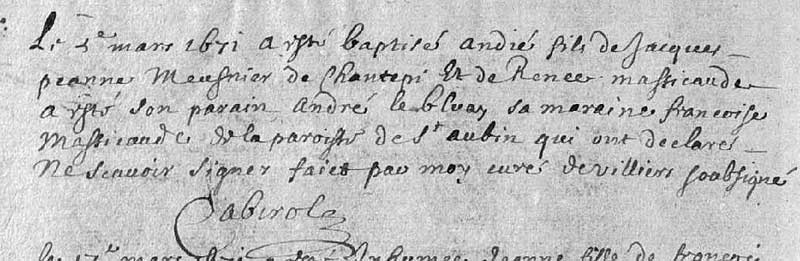 Le 5e mars 1671 a esté baptisé andré fils de Jacques
jeanne Meusnier de Chantepi Et de Renee massicaude
a esté son parain André le bluay sa maraine francoise
Massicaude de la paroisse de st aubin qui ont declaré
Ne scavoir signer faict par moy curé de villiers soubsigné
Cabirol
le 17e mars 1671 a esté Inhumee Jeanne fille de francois